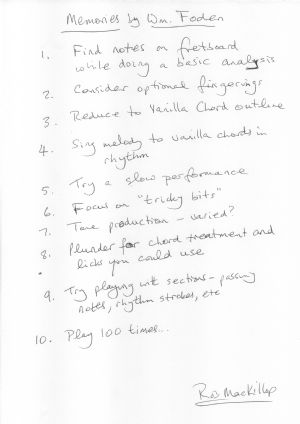 Memories by Wm. Foden
1. Find notes on fretboard
while doing a basic analysis
2. Consider optional fingerings
3. Reduce to Vanilla Chord outline
4. Sing melody to vanilla chords in
rhythm
5. Try a slow performance
6. Focus on "tricky bits"
7. Tone production - varied?
8. Plunder for chord treatment and
licks you could use
9. Try playing with sections - passing
notes, rhythm strokes, etc
10. Play 100 times...
Rob MacKillop